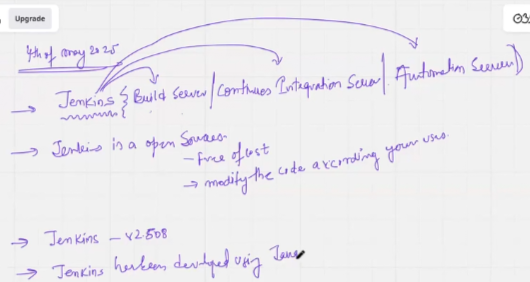 Upgrade
4th of may 2025
→ Jenkins { Build Server / Continues Integration Server / Automation Server }
→ Jenkins is a open Sources.
- Free of cost
→ modify the code according your uses.
→ Jenkins - v2.508
→ Jenkins has been developed using Java